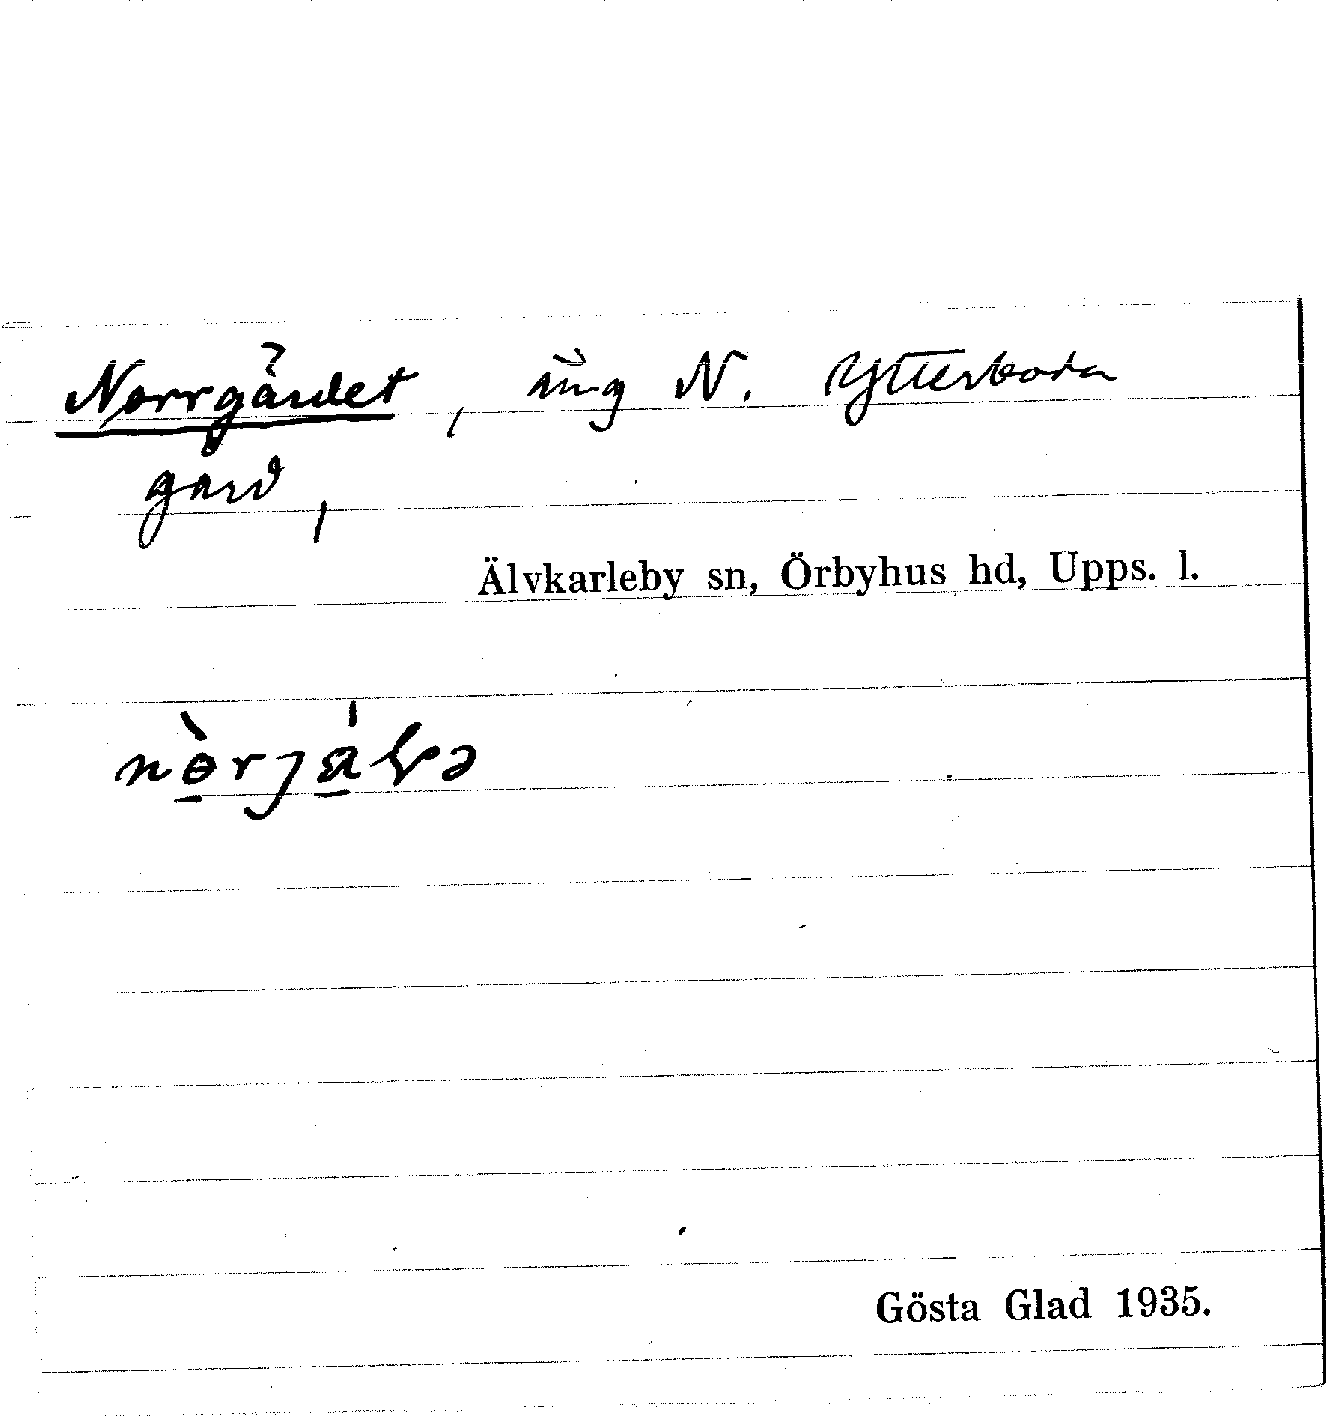 Norrgärdet, äng N. Ytterboda
gärd,
Älvkarleby sn, Örbyhus hd, Upps. l.
Gösta Glad 1935.